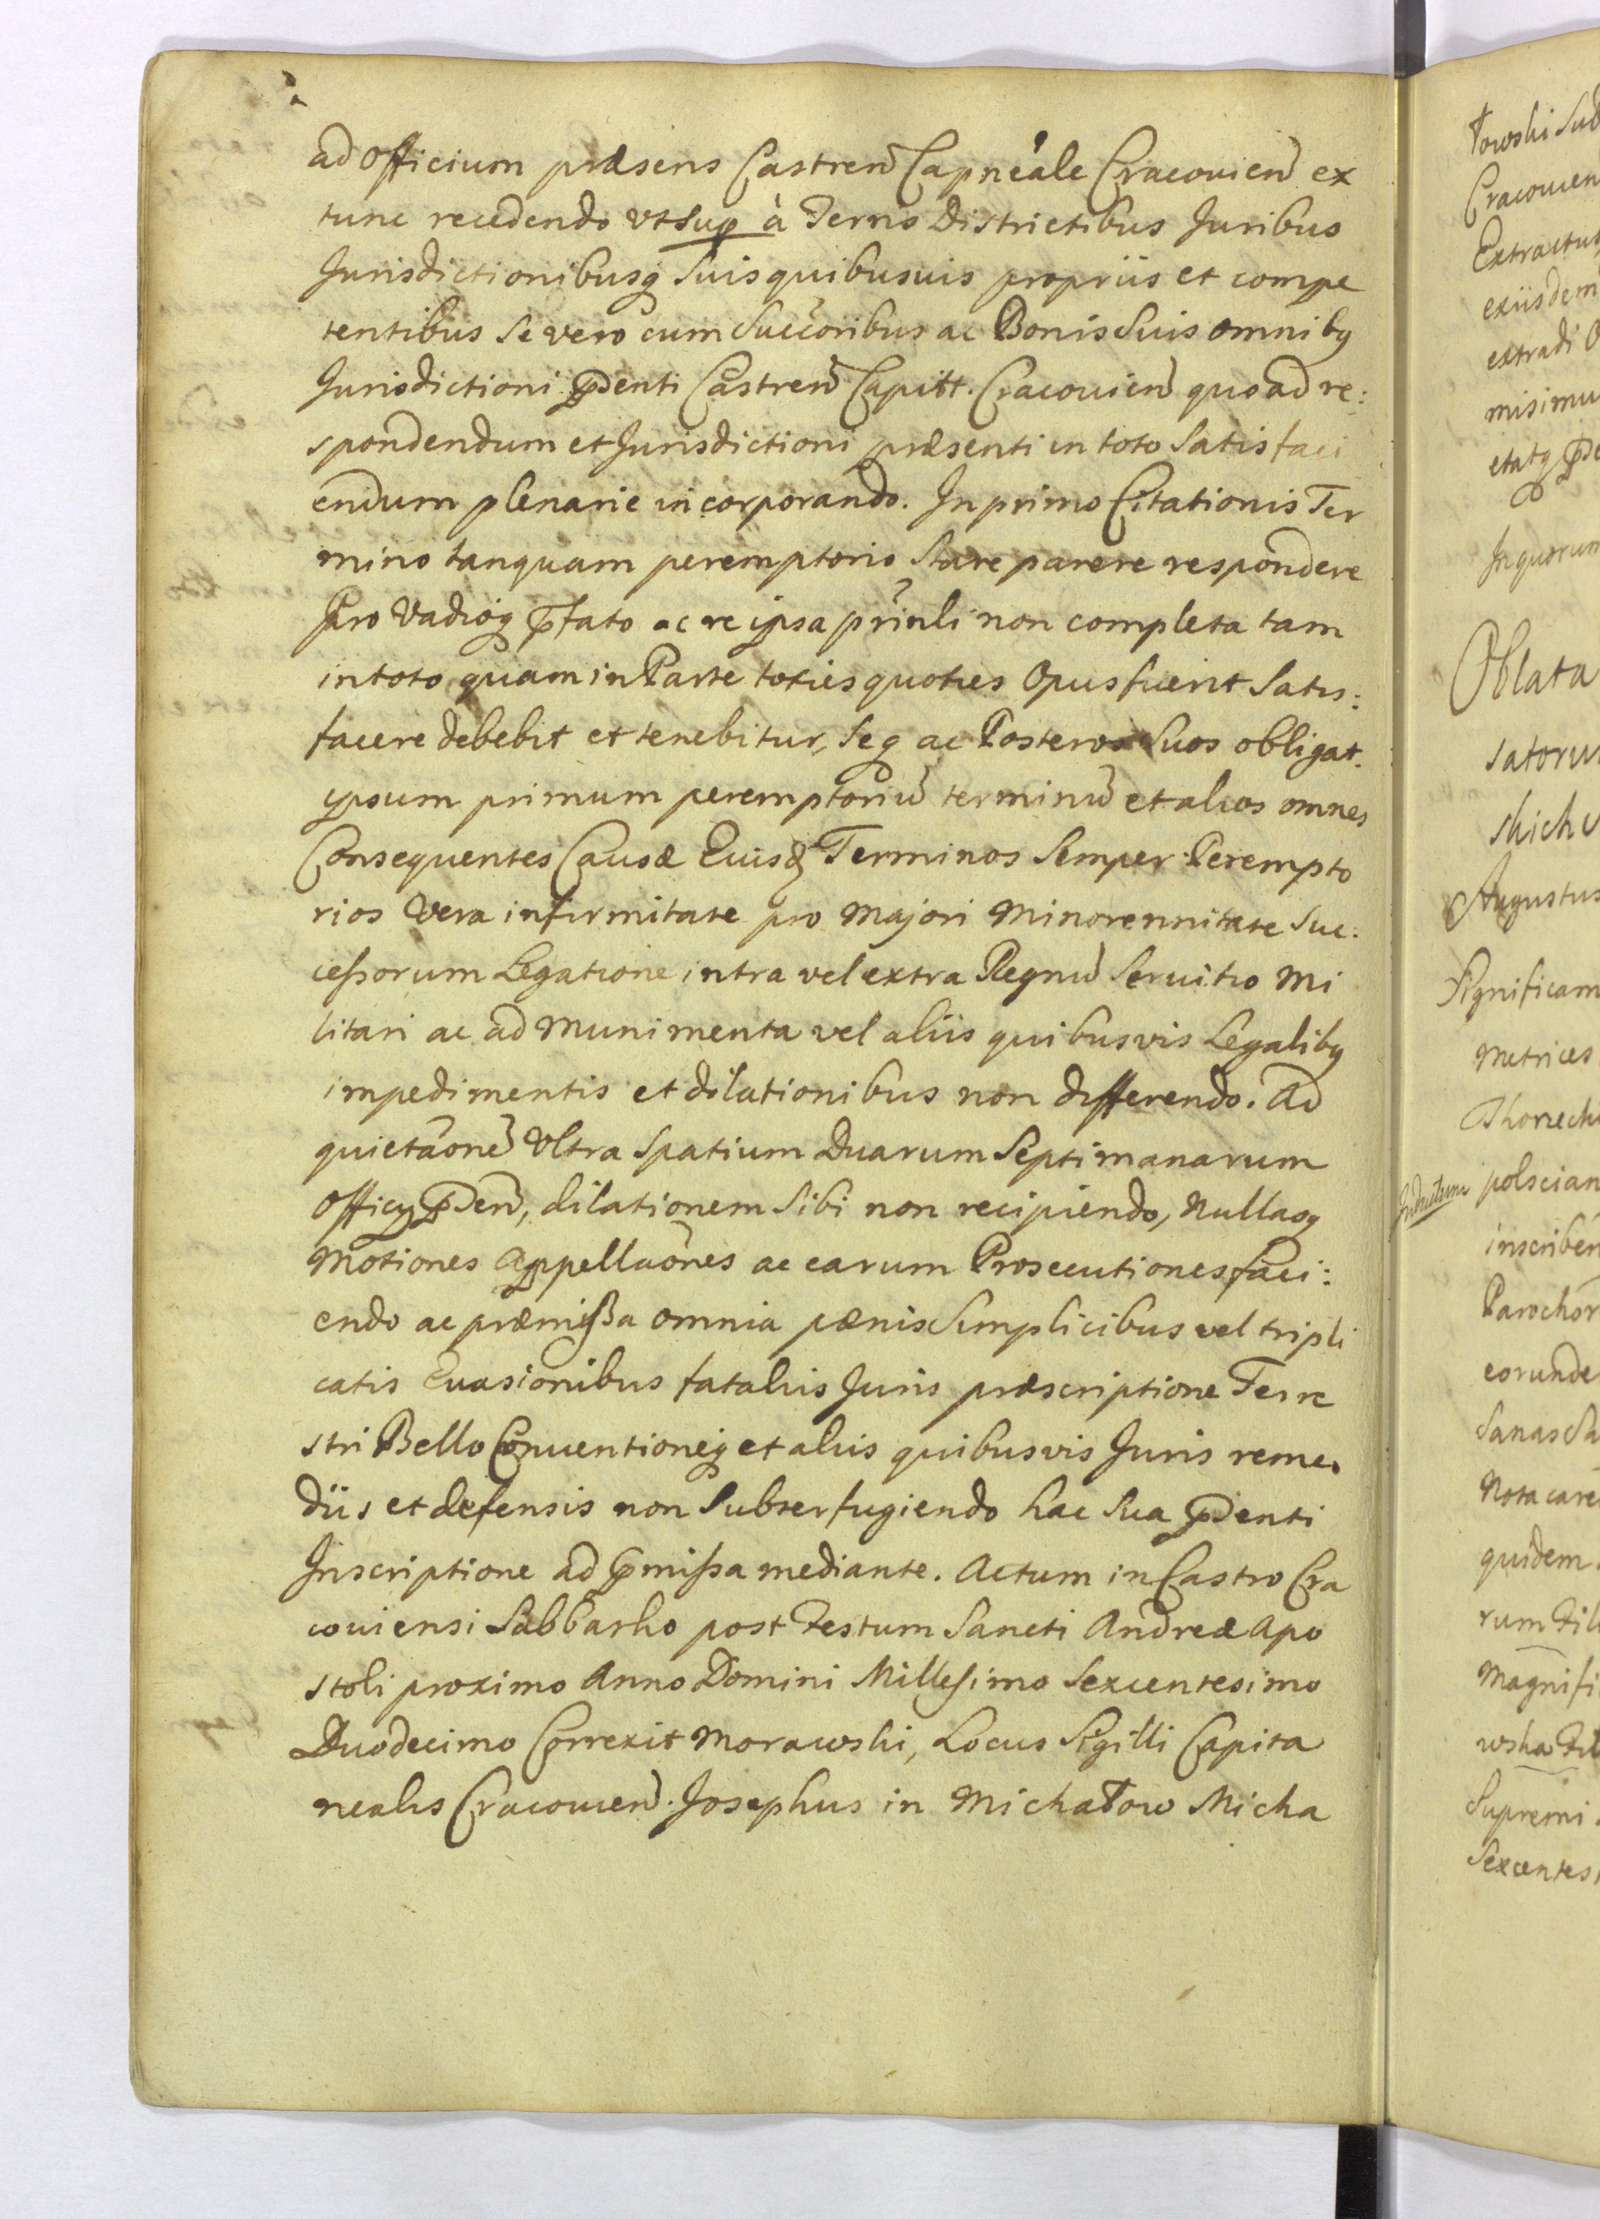 ad Officium præsens Castren Capneale Cracouien ex
tunc recedendo vt sup à Terris Districtibus Juribus
Jurisdictionibusq Suis quibusuis propriis et compe
tentibus se vero cum Succoribus ac Bonis Suis omnibq
Jurisdictioni pñdenti Castren Capitt. Cracouien quo ad re:
spondendum et Jurisdictioni præsenti in toto Satisfaci
endum plenarie incorporando. In primo Citationis Ter
mino tanquam peremptorio Stare parere respondere
Pro Vadioq pfato ac re ipsa prinli non completa tam
in toto quam in Parte toties quoties Opus fuerit Satis:
facere debebit et tenebitur, Seq ac Posteros Suos obligat.
ipsum primum peremptoriu terminu et alios omnes
Consequentes Causæ Euisd Terminos Semper Perempto
rios Vera infirmitate pro Majori Minorennitate Suc:
cessorum Legatione intra vel extra Regnu Seruitio Mi
litari ac ad Munimenta vel aliis quibusvis Legalibq
impedimentis et dilationibus non differendo. Ad
quietaone Vltra Spatium Duarum Septimanarum
Officy pden, dilationem Sibi non recipiendo, Nullasq
Motiones Appellaones ac earum Prosecutiones faci:
endo ac præmissa omnia pænis Simplicibus vel tripli
catis Evasionibus fataliis Juris præscriptione Terre
stri Bello Conuentioneq et aliis quibusvis Juris reme
diis et defensis non Subterfugiendo hac Sua pdenti
Inscriptione ad pmissa mediante. Actum in Castro Cra
couiensi Sabbatho post Festum Sancti Andreæ Apo
stoli proximo Anno Domini Millesimo Sexcentesimo
Duodecimo Correxit Morawski, Locus Sigilli Capita
nealis Cracouien. Josephus in Michałow Micha
łowski
Cracouien
Extractus
exiisdem
extradi
misimu
In quorum
Oblata
Augustus
Significam
Metrices
Indutum
Parochor
eorunde
quidem
Magnifi
Supremi
Sexcentes